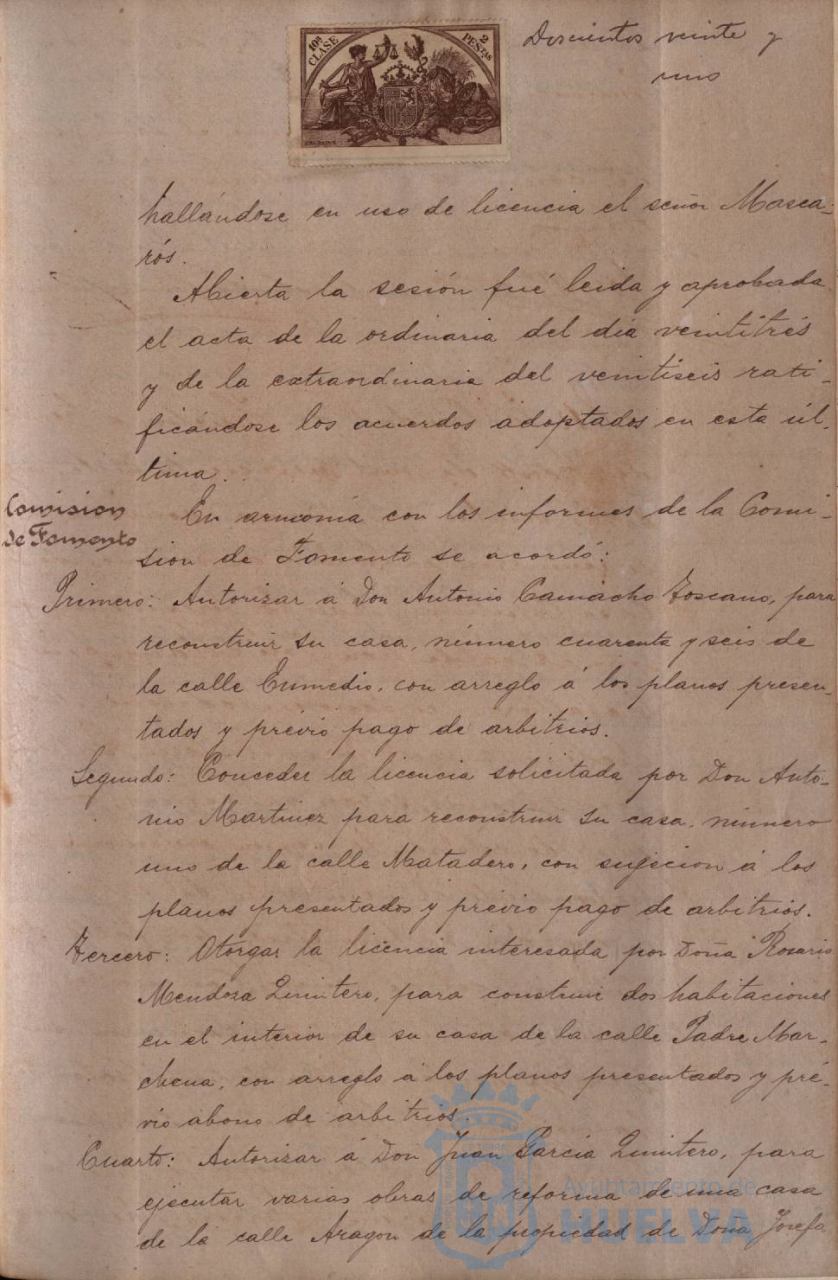 10ª CLASE 2 PESETAS
Doscientos veinte y
uno
hallándose en uso de licencia el señor Masca-
rós.
Abierta la sesión fué leida y aprobada
el acta de la ordinaria del dia veintitrés
y de la extraordinaria del veintiseis rati-
ficándose los acuerdos adoptados en esta úl-
tima.
Comision
de Fomento
En armonía con los informes de la Comi-
sion de Fomento se acordó:
Primero: Autorizar á Don Antonio Camacho Toscano, para
reconstruir su casa, número cuarenta y seis de
la calle Enmedio, con arreglo á los planos presen-
tados y prévio pago de arbitrios.
Segundo: Conceder la licencia solicitada por Don Anto-
nio Martinez para reconstruir su casa, número
uno de la calle Matadero, con sujecion á los
planos presentados y prévio pago de arbitrios.
Tercero: Otorgar la licencia interesada por Doña Rosario
Mendoza Quintero, para construir dos habitaciones
en el interior de su casa de la calle Padre Mar-
chena, con arreglo á los planos presentados y pré-
vio abono de arbitrios.
Cuarto: Autorizar á Don Juan Garcia Quintero, para
ejecutar varias obras de reforma de una casa
de la calle Aragon de la propiedad de Doña Josefa
Ayuntamiento de
HUELVA